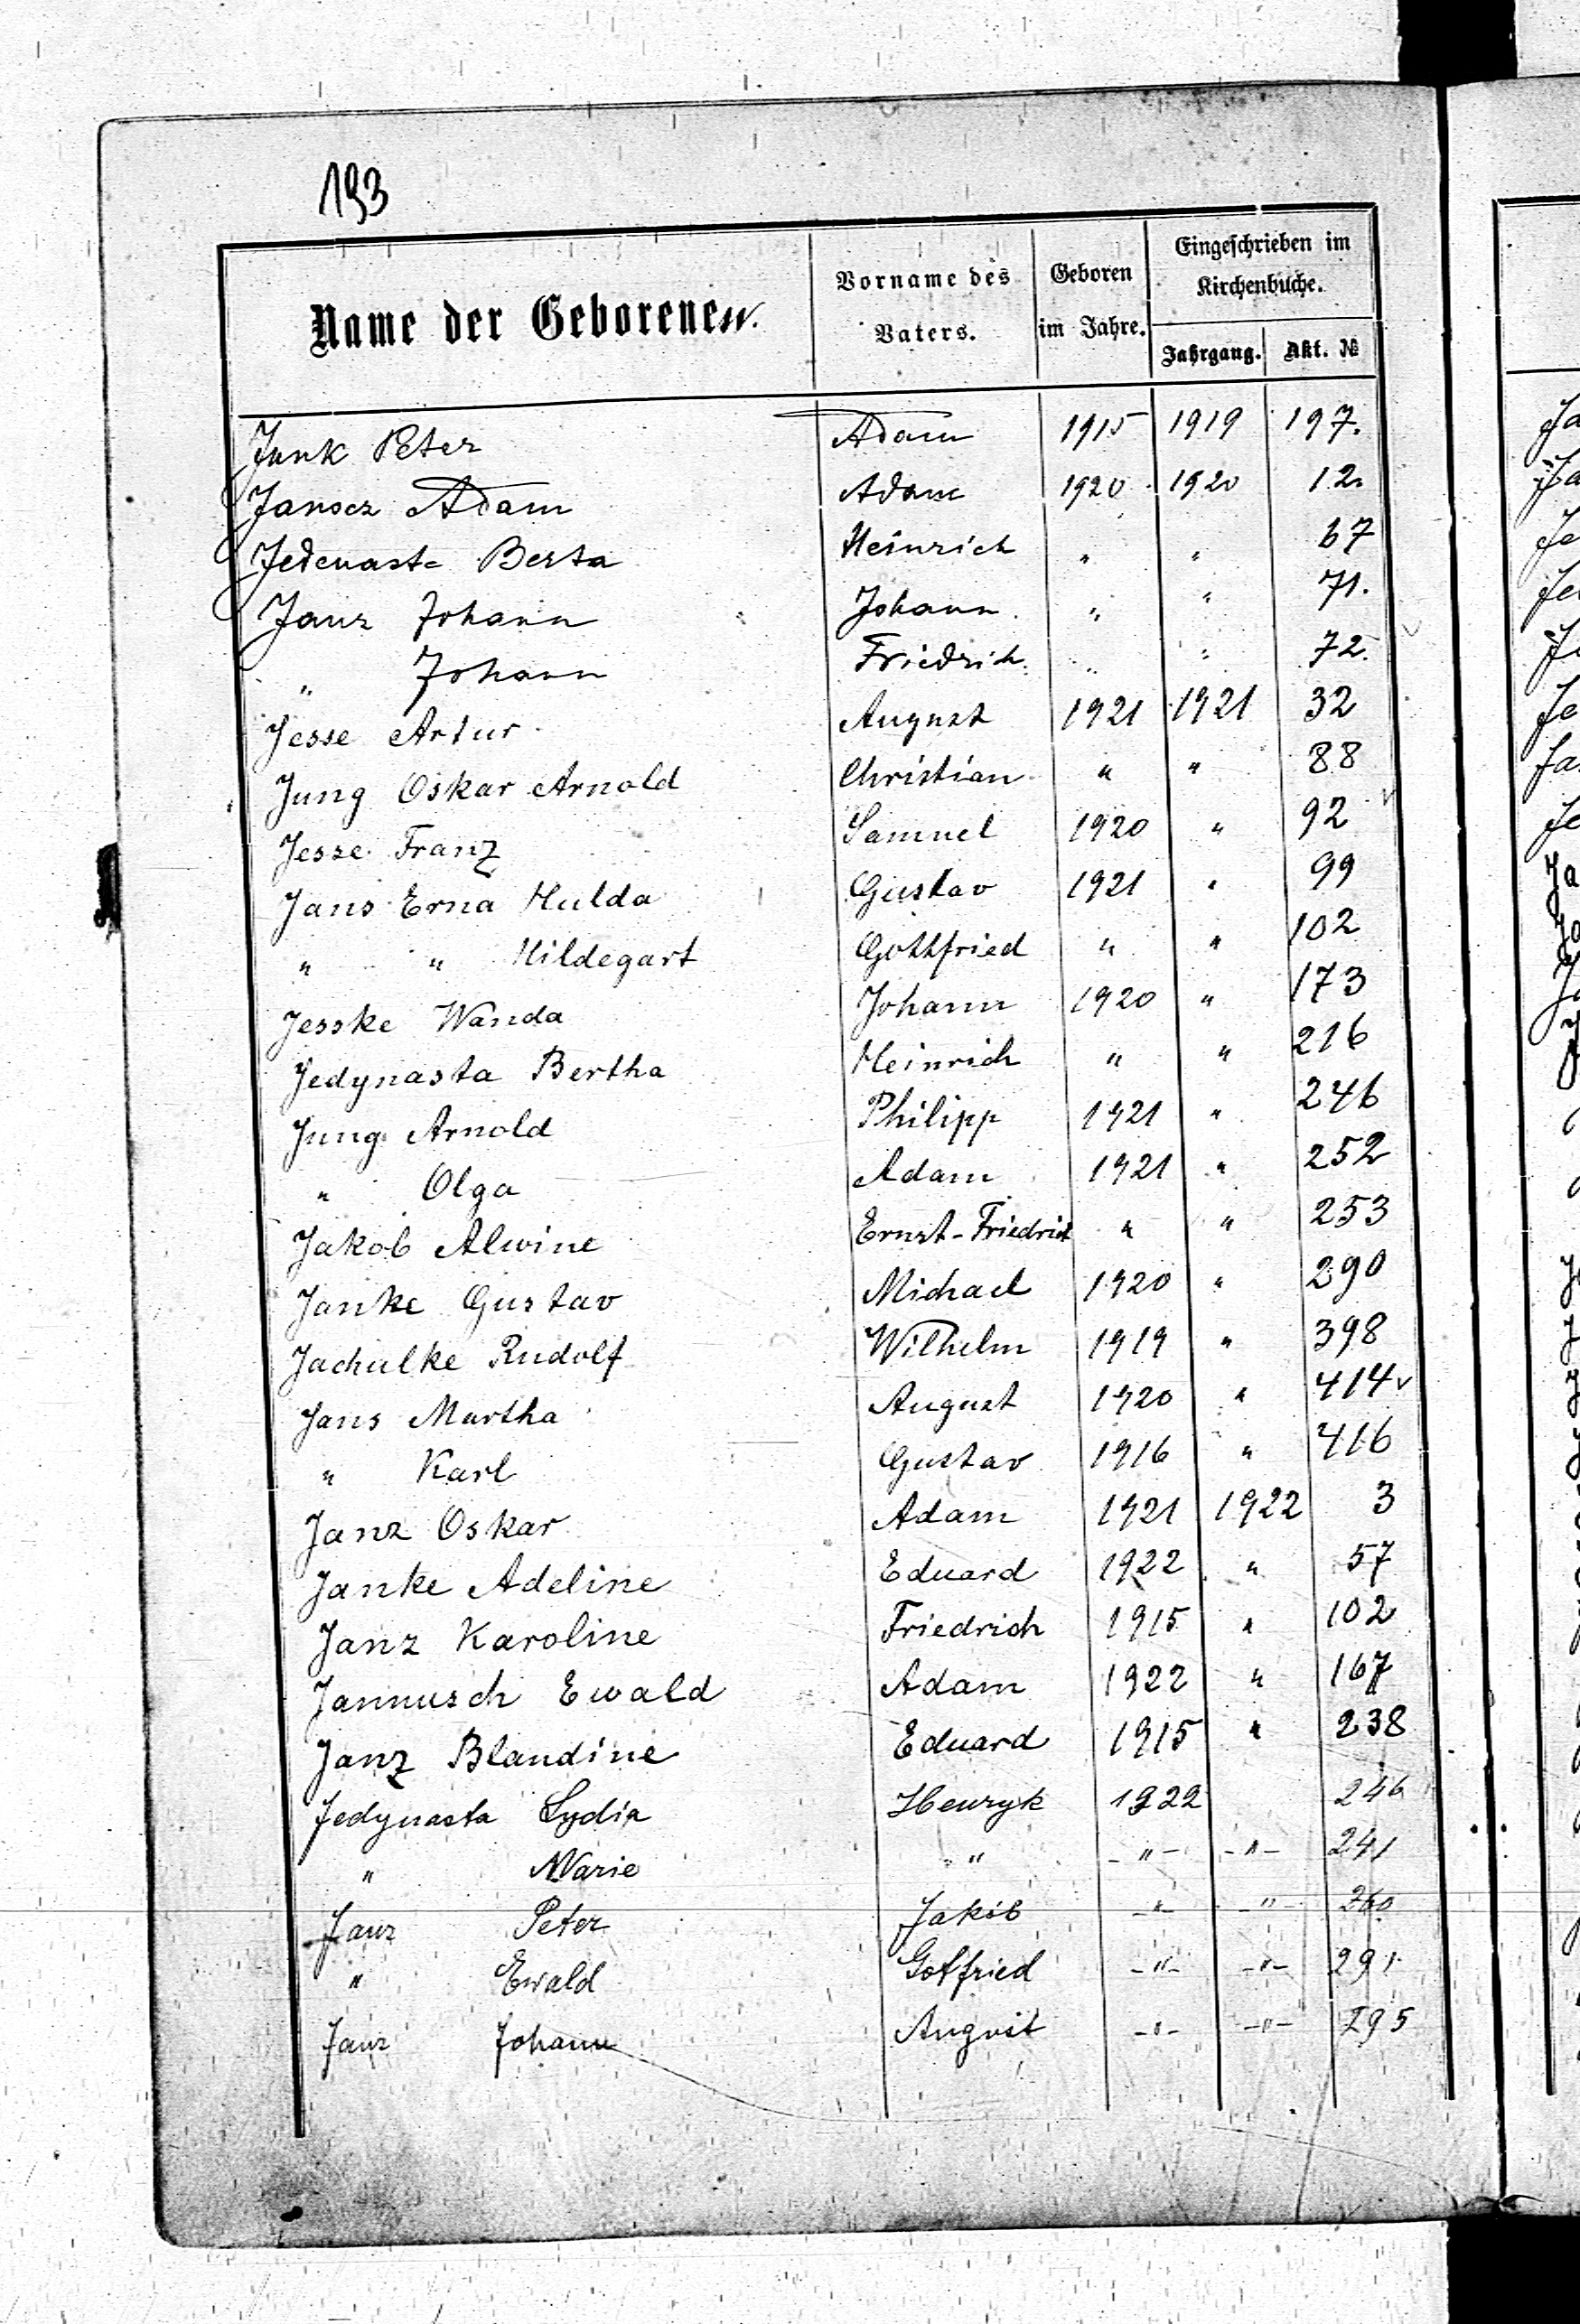 193
Name der Geborenen.
Vorname des Vaters.
Geboren im Jahre.
Eingeschrieben im Kirchenbuche.
Jahrgang. Akt. №
Junk Peter Adam 1915 1919 197.
Janocz Adam Adam 1920 1920 12.
Jedenasta Berta Heinrich " " 67
Janz Johann Johann " " 71.
" Johann Friedrich " " 72.
Jesse Artur August 1921 1921 32
Jung Oskar Arnold Christian " " 88
Jesse Franz Samuel 1920 " 92
Jans Erna Hulda Gustav 1921 " 99
" " Hildegart Gottfried " " 102
Jesske Wanda Johann 1920 " 173
Jedynasta Bertha Heinrich " " 216
Jung Arnold Philipp 1921 " 246
" Olga Adam 1921 " 252
Jakob Alwine Ernst-Friedrich " " 253
Janke Gustav Michael 1920 " 290
Jachulke Rudolf Wilhelm 1919 " 398
Jans Martha August 1920 " 414
" Karl Gustav 1916 " 416
Janz Oskar Adam 1921 1922 3
Janke Adeline Eduard 1922 " 57
Janz Karoline Friedrich 1915 " 102
Jannusch Ewald Adam 1922 " 167
Janz Blandine Eduard 1915 " 238
Jedynasta Lydia Henryk 1922 246
" Marie " -"- -"- 241
Janz Peter Jakób -"- -"- 260
" Ewald Gotfried -"- -"- 291
Janz Johann August -"- -"- 295